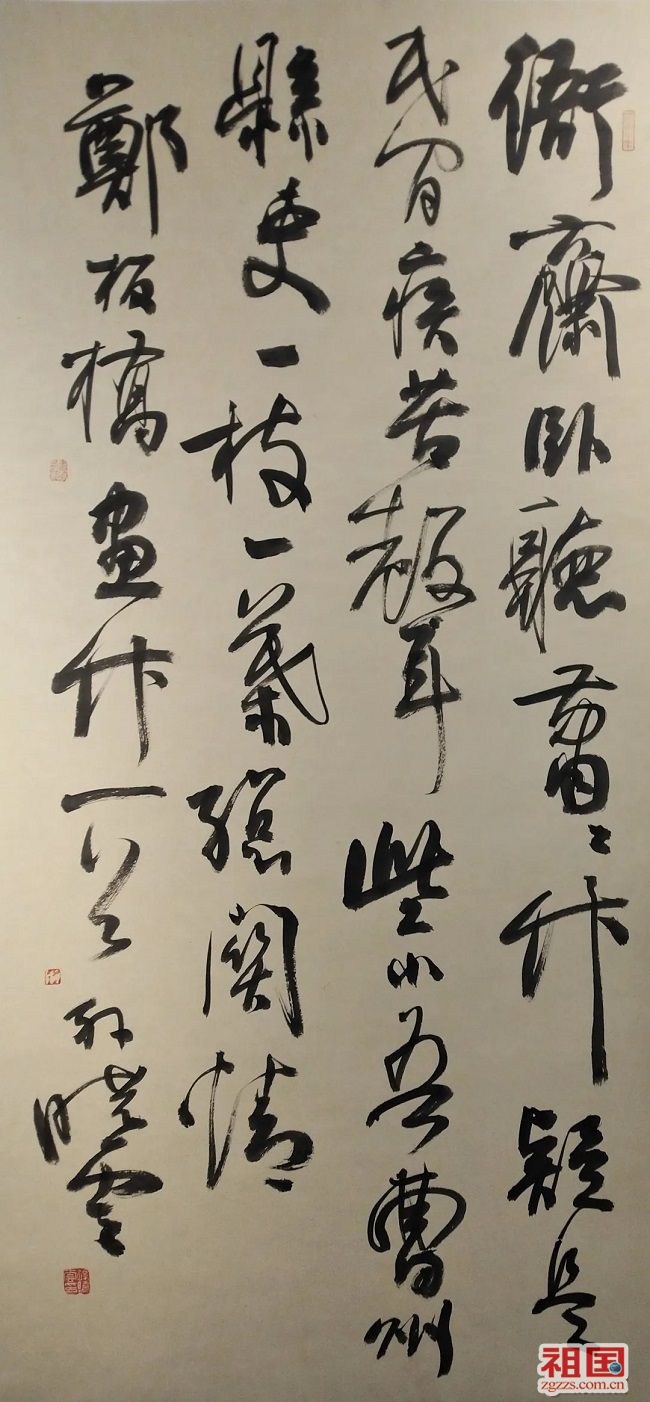 衙齋卧聽蕭〻竹疑是
民間疾苦聲些小吾曹州
縣吏一枝一葉總關情
鄭板橋畫竹一首 孫曉雲
祖国
zgzzs.com.cn